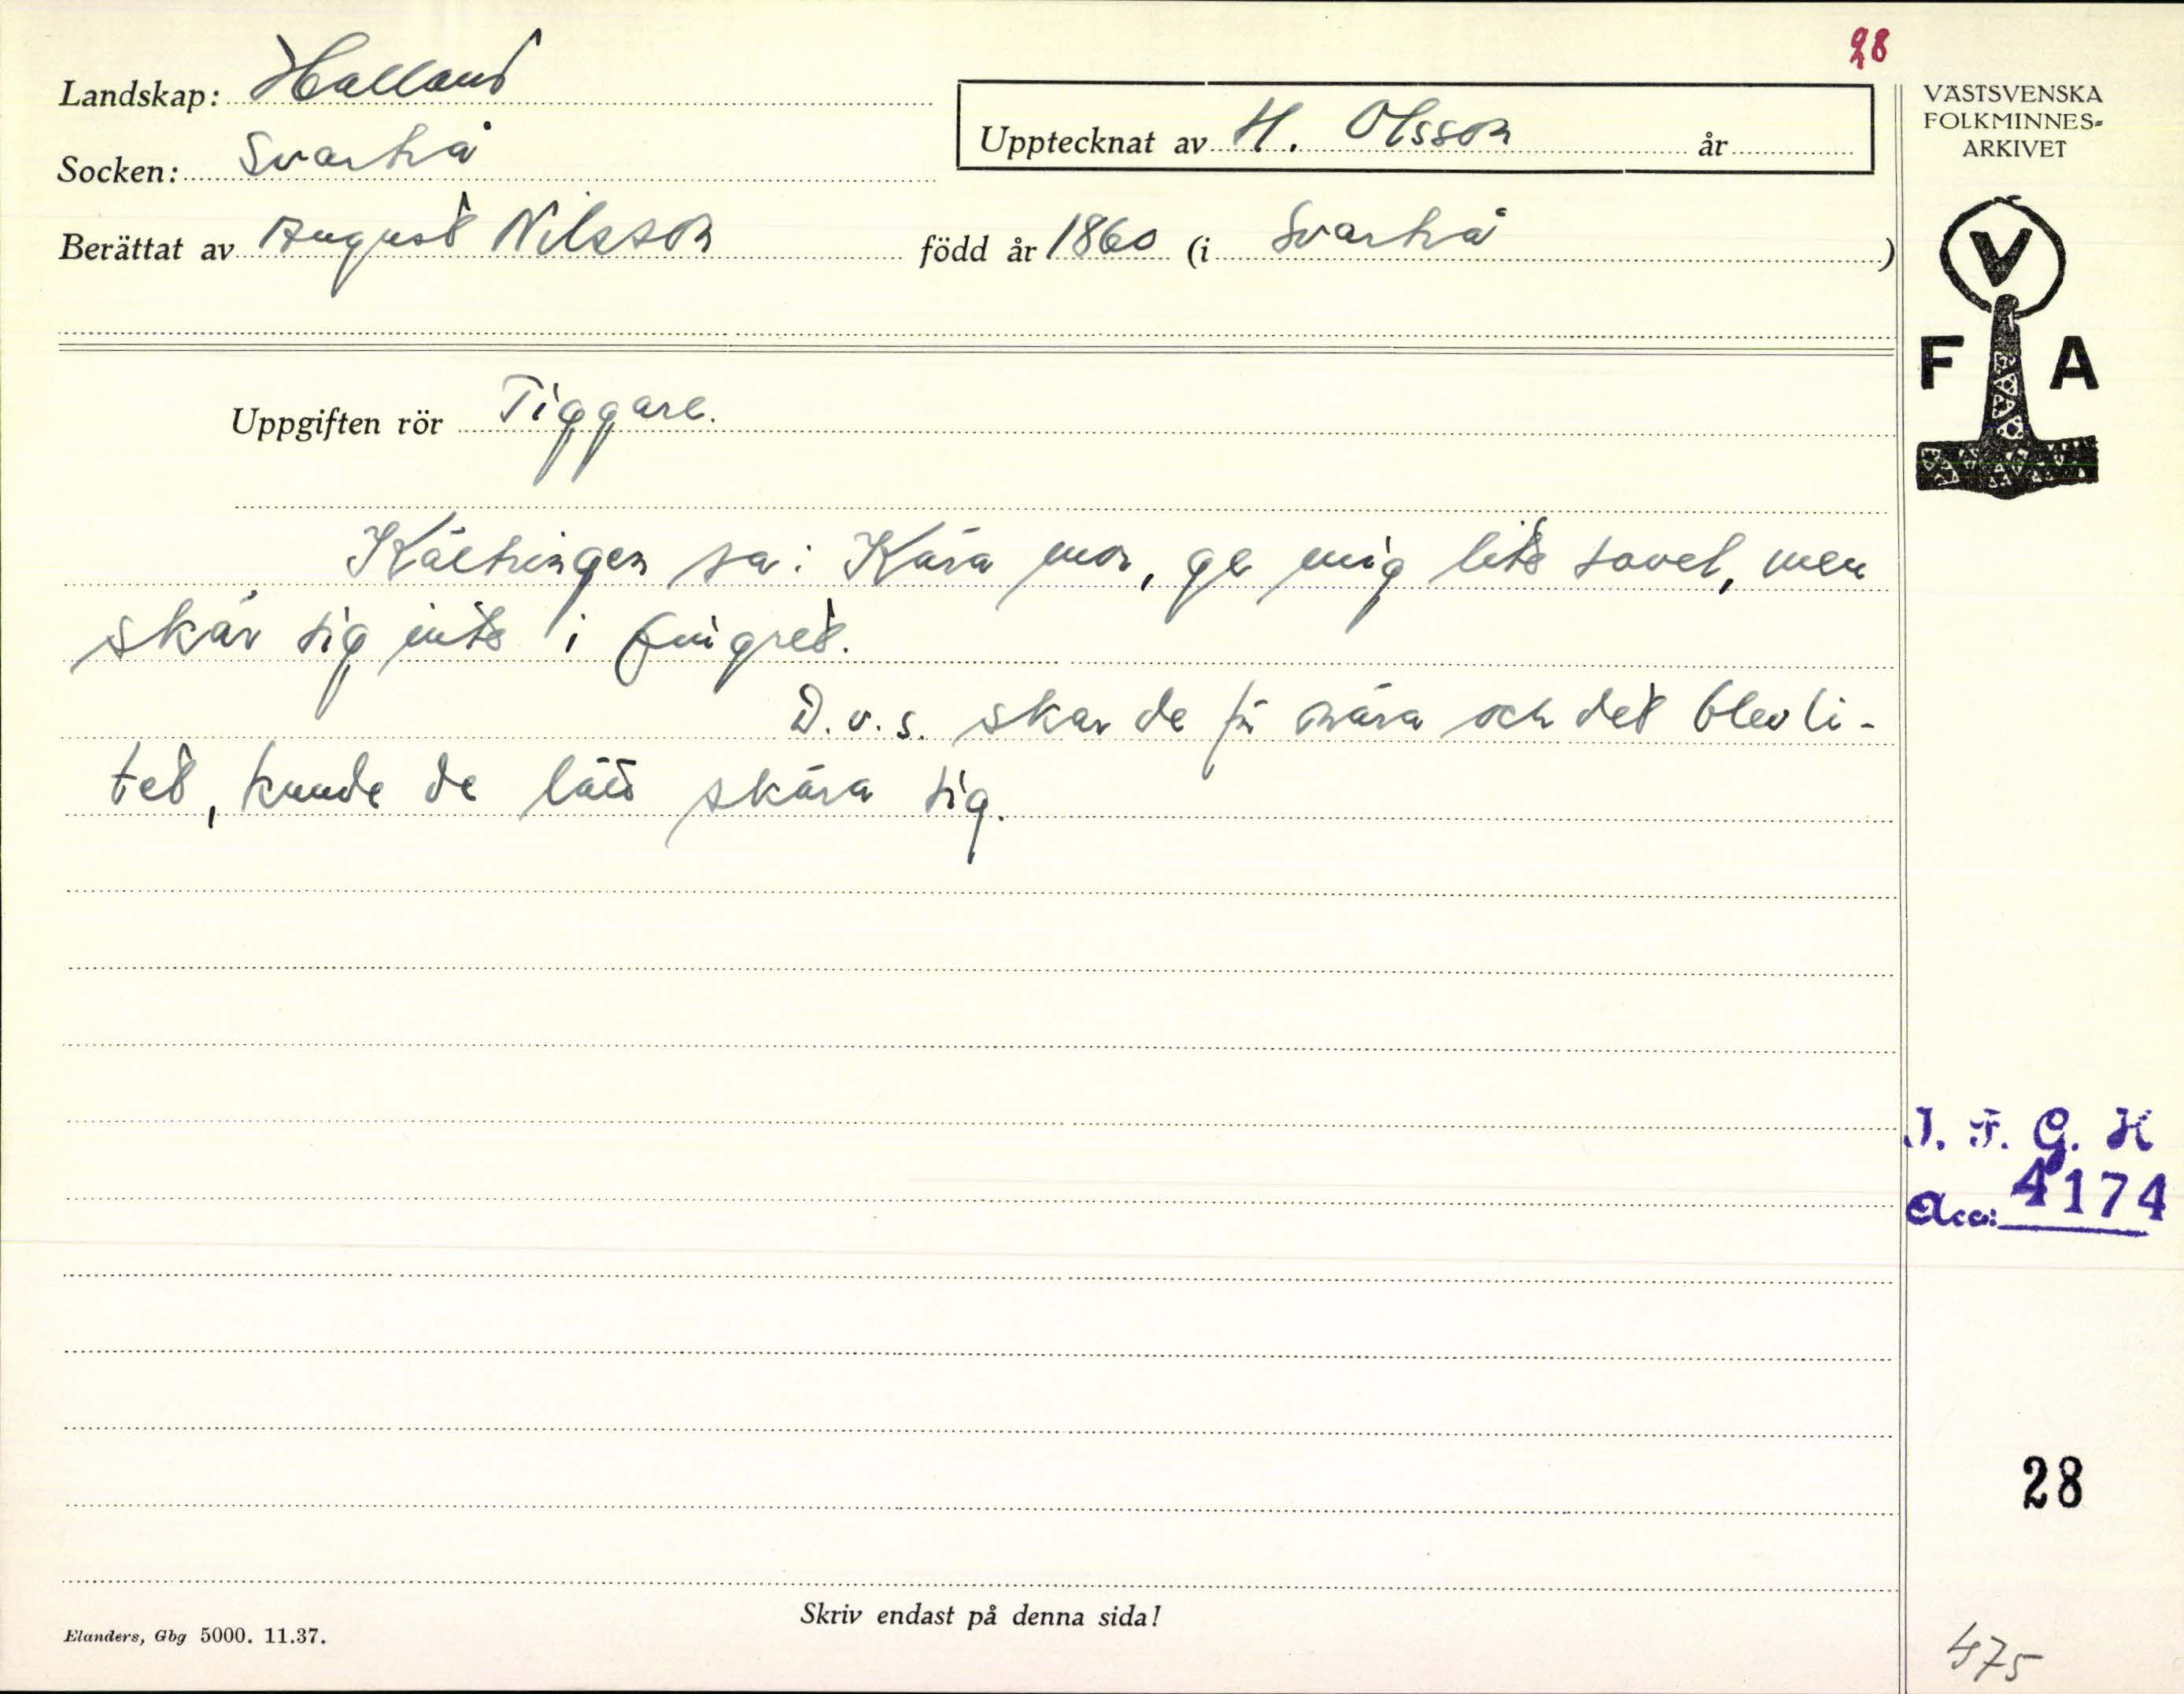 28
Landskap: Halland
Upptecknat av H. Olsson år
VÄSTSVENSKA
FOLKMINNES-
ARKIVET
Socken: Svartrå
Berättat av August Nilsson född år 1860 (i Svartrå)
V
F A
Uppgiften rör Tiggare.
Käringen sa: Kära mor, ge mig lite sovel, men
skär sig inte i fingret.
D.v.s. skar de för nära och det blev li-
tet, kunde de lätt skära sig.
I. F. G. H
Acc: 4174
28
Skriv endast på denna sida!
Elanders, Gbg 5000. 11.37.
475